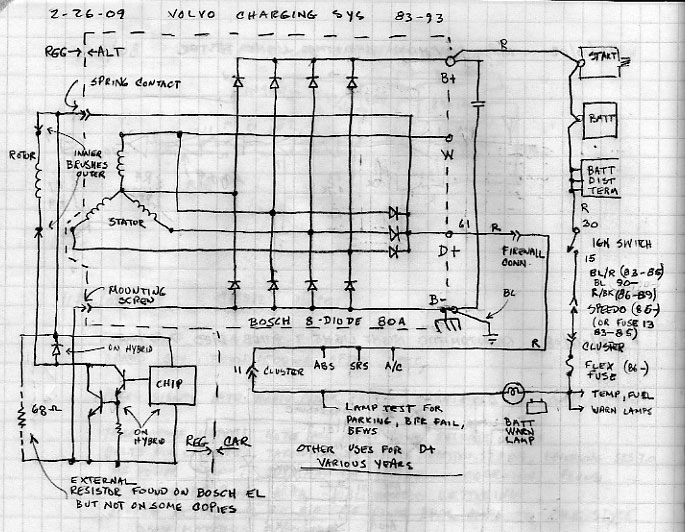 2-26-09 VOLVO CHARGING SYS 83-93
REG ALT
SPRING CONTACT
R
START
B+
BATT
ROTOR
INNER
BRUSHES
OUTER
W
BATT
DIST
TERM
STATOR
61
R
D+
FIREWALL
CONN.
R
30
IGN SWITCH
15
BL/R (83-85)
BL 90-
R/BK (86-89)
MOUNTING
SCREW
B-
BL
SPEEDO (85-)
(OR FUSE 13
83-85)
CLUSTER
BOSCH 8-DIODE 80A
R
ON HYBRID
CHIP
11
CLUSTER
ABS
SRS
A/C
FLEX
FUSE (86-)
TEMP, FUEL
WARN LAMPS
68Ω
ON
HYBRID
REG CAR
LAMP TEST FOR
PARKING, BRK FAIL,
BFWS
BATT
WARN
LAMP
OTHER USES FOR D+
VARIOUS YEARS
EXTERNAL
RESISTOR FOUND ON BOSCH EL
BUT NOT ON SOME COPIES